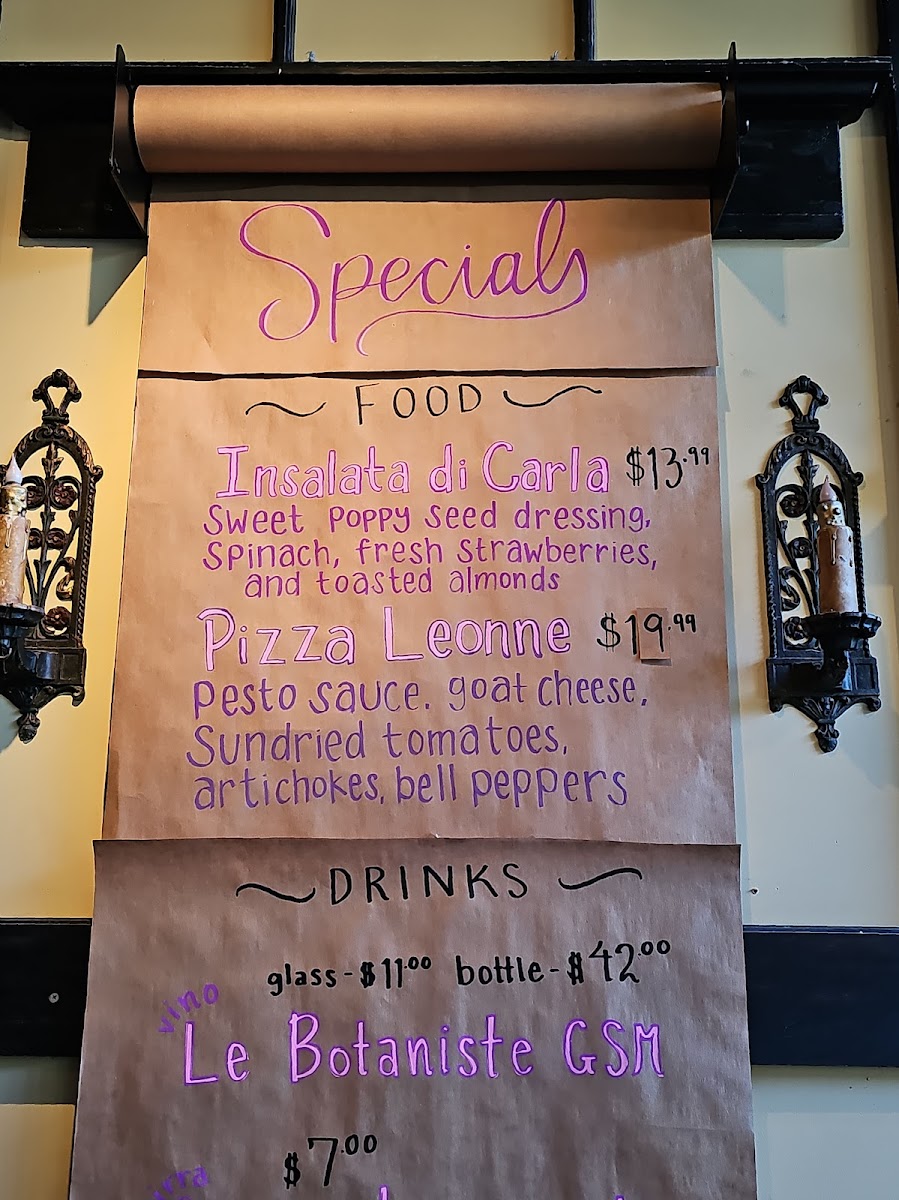 Specials
FOOD
Insalata di Carla $13.99
Sweet poppy seed dressing,
spinach, fresh strawberries,
and toasted almonds
Pizza Leonne $19.99
pesto sauce. goat cheese,
Sundried tomatoes,
artichokes, bell peppers
DRINKS
glass - $11.00 bottle - $42.00
vino
Le Botaniste GSM
$7.00